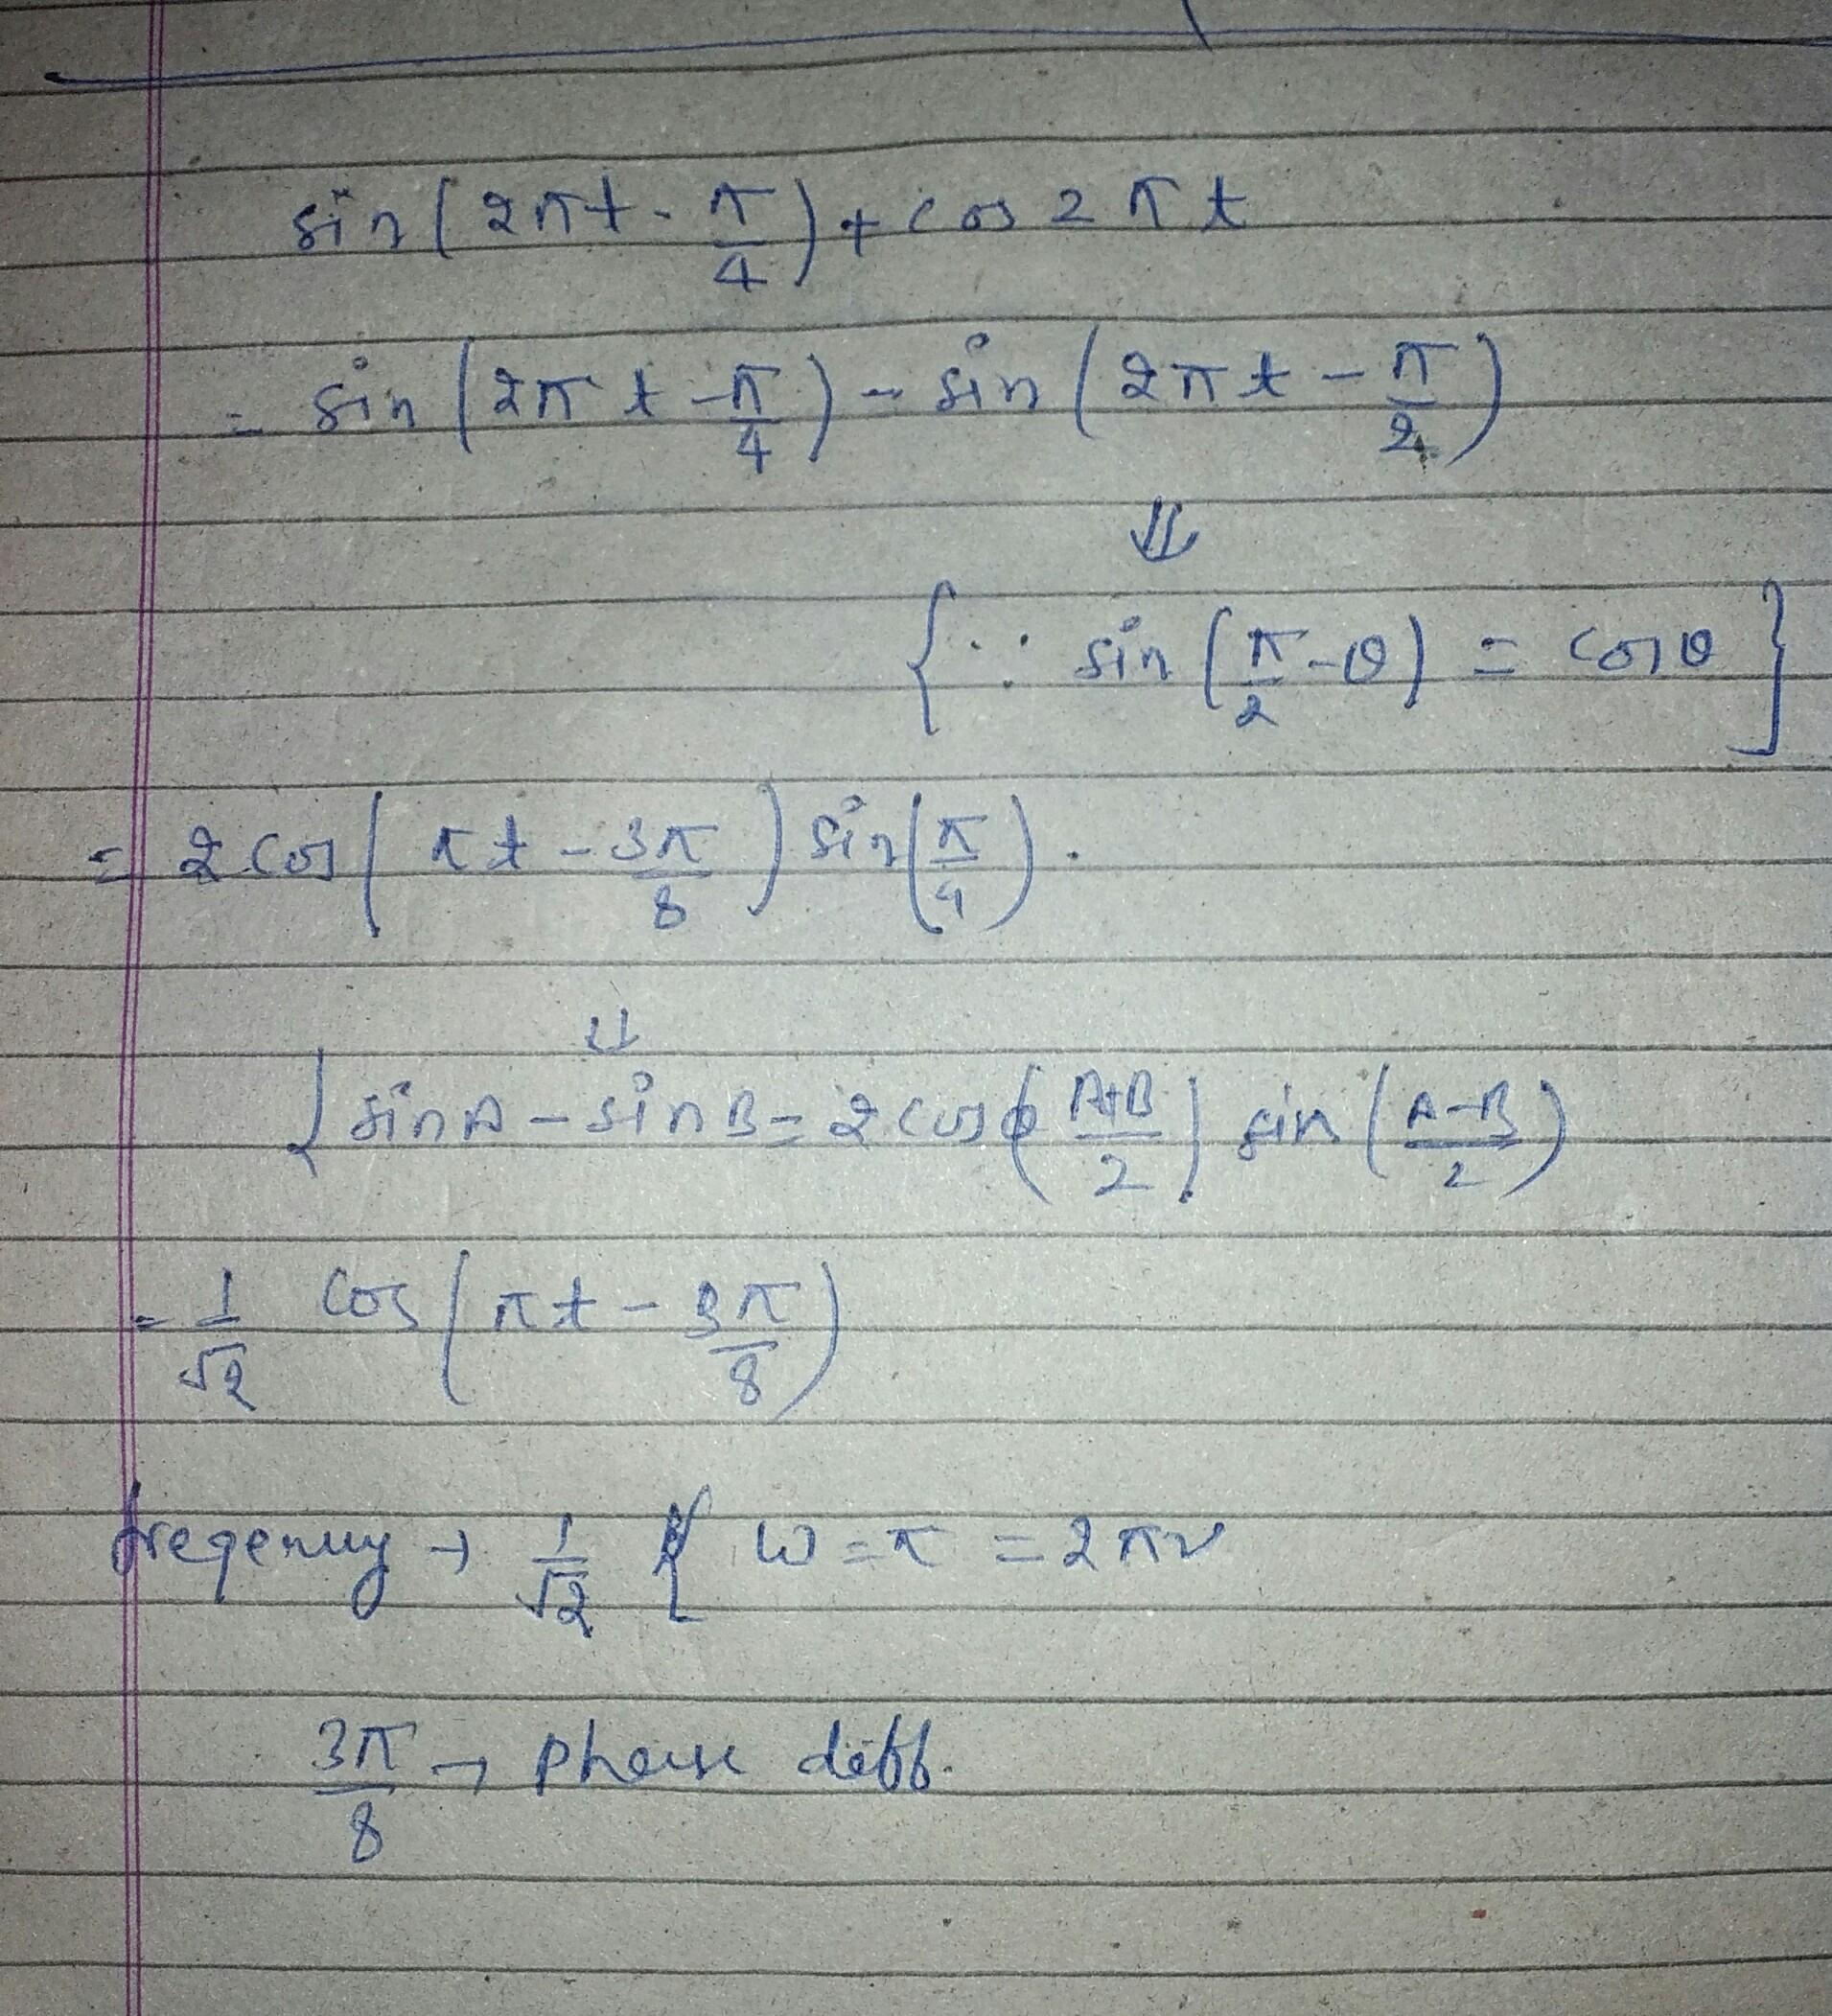 sin(2πt - π/4) + cos 2πt
= sin(2πt - π/4) - sin(2πt - π/2)
⇓
{∵ sin(π/2 - θ) = cosθ}
= 2 cos(πt - 3π/8) sin(π/4).
⇓
{sinA - sinB = 2 cos(A+B/2) sin(A-B/2)
= 1/√2 cos(πt - 3π/8)
freqenuy → 1/√2 { ω = π = 2πν
3π/8 → phase diff.